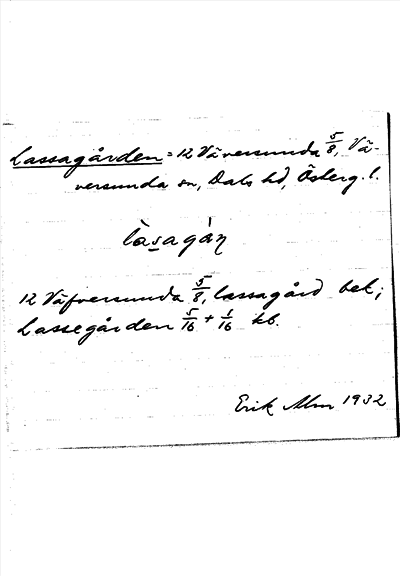 Lassagården = 12 Väversunda 5/8, Vä-
versunda sn, Dals hd, Österg. l.
làsagàɳ
12 Väfversunda 5/8, lassagård bek;
Lassegården 5/16 + 1/16 kb.
Erik Alm 1932